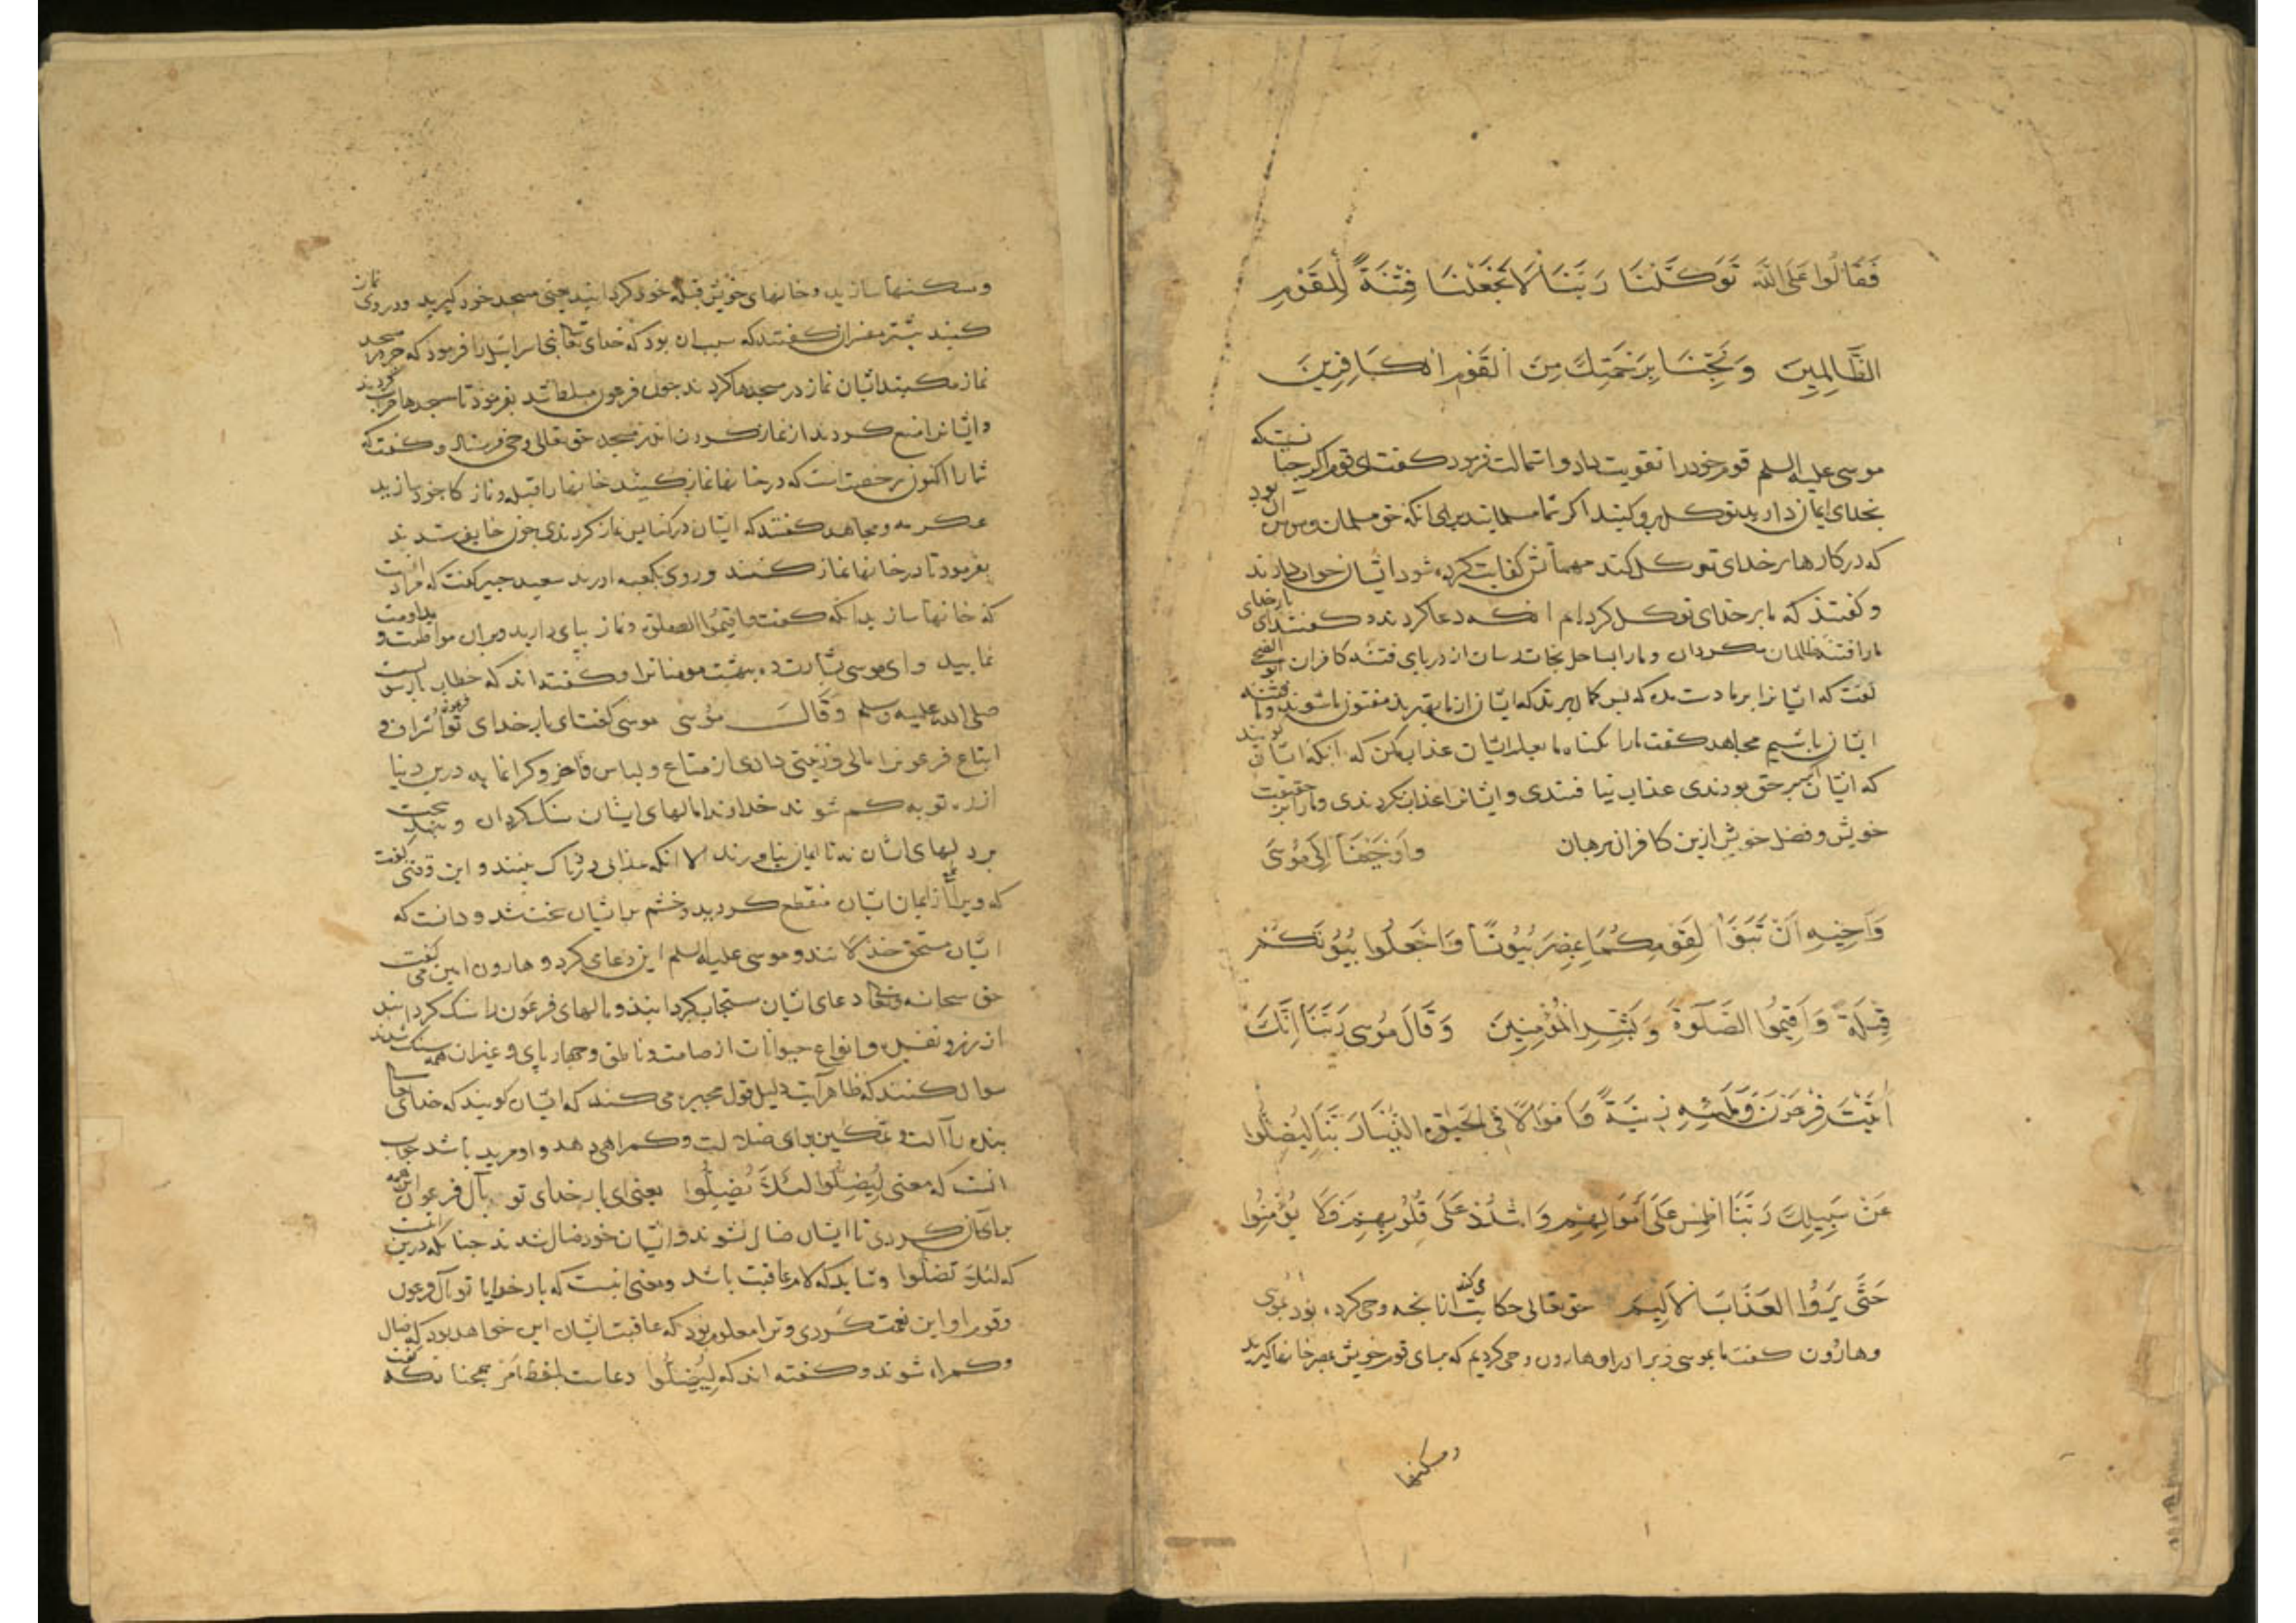 فَقَالُوا عَلَى اللَّهِ تَوَكَّلْنَا رَبَّنَا لَا تَجْعَلْنَا فِتْنَةً لِلْقَوْمِ
الظَّالِمِينَ وَنَجِّنَا بِرَحْمَتِكَ مِنَ الْقَوْمِ الْكَافِرِينَ
موسی علیه السلم قوم خود را تقویت داد و استمالت فرمود کفت ای قوم اکر جنا نستکه
بخدای ایمان دارید توکل برو کنید اکر شما مسلمانید برای انکه حق مسلمان و مومن ان بود
که در کارها بر خدای توکل کند مهماتش کفایت کرده شود ایشان جواب دادند
و کفتند که ما بر خدای توکل کردیم انکه دعا کردند و کفتند ای بار خدای
ما را فتنه ظالمان مکردان و ما را بساحل نجات رسان از دریای فتنه کافران ابو الضحی
کفت که ایشانرا بر ما دست مده که بس کمان برند که ایشان از ما بهترند مفتون ما شوند و ما فتنه
ایشان باشیم مجاهد کفت ما را بکناه ما بعذاب ایشان عذاب مکن که انکه ایشان کویند
که ایشان اکر بر حق بودندی عذاب نیافتندی و ایشانرا عذاب نکردندی و ما را بر حقیقت
خویش و فضل خویش ازین کافران برهان وَأَوْحَيْنَا إِلَى مُوسَى
وَأَخِيهِ أَنْ تَبَوَّآ لِقَوْمِكُمَا بِمِصْرَ بُيُوتًا وَاجْعَلُوا بُيُوتَكُمْ
قِبْلَةً وَأَقِيمُوا الصَّلَوٰةَ وَبَشِّرِ الْمُؤْمِنِينَ وَقَالَ مُوسَى رَبَّنَا إِنَّكَ
آتَيْتَ فِرْعَوْنَ وَمَلَئِهِ زِينَةً وَأَمْوَالًا فِي الْحَيَوٰةِ الدُّنْيَا رَبَّنَا لِيُضِلُّوا
عَنْ سَبِيلِكَ رَبَّنَا اطْمِسْ عَلَى أَمْوَالِهِمْ وَاشْدُدْ عَلَى قُلُوبِهِمْ فَلَا يُؤْمِنُوا
حَتَّى يَرَوُا الْعَذَابَ الْأَلِيمَ حق تعالی حکایت می کند انا بحه وحی کرده بود بموسی
وهارُون کفت ما بموسی و برادر او هارون وحی کردیم که برای قوم خویش بمصر خانها کیرید
و مسکنها
و مسکنها سازید و خانهای خویش قبله خود کردانید یعنی مسجد خود کیرید و در وی نماز
کنید بیشتر مفسران کفتند که سبب ان بود که خدای تعالی بنی اسرائیل را فرمود که جز در مسجد
نماز مکنید ایشان نماز در مسجدها کردند چون فرعون مسلط شد بفرمود تا مسجدها خراب کردند
و ایشانرا منع کردند از نماز کردن اندر مسجد حق تعالی وحی فرستاد و کفت که
شما را اکنون رخصت است که در خانها نماز کنید خانها را قبله و نماز کاه خود سازید
عکرمه و مجاهد کفتند که ایشان در کنایس نماز کردندی چون خایف شدند
بفرمود تا در خانها نماز کنند و روی بکعبه اورند سعید جبیر کفت که مراد انست
که خانها سازید انکه کفت وَأَقِيمُوا الصلوة و نماز بپای دارید و بران مواظبت و مداومت
نمایید و ای موسی بشارت ده ببهشت مومنانرا و کفته‌اند که خطاب با رسولست
صلی الله علیه وسلم وَقَالَ مُوسَى موسی کفت ای بار خدای تو اشراف و
اتباع فرعونرا مالی و زینتی دادی از متاع و لباس فاخر و کرانمایه درین دنیا
از ره تو به کم شوند خداوندا مالهای ایشان سنک کردان و بند سخت
بر دلهای ایشان نه تا ایمان نیاورند الا انکه عذابی دردناک بینند و این وقتی کفت
که ویرا از ایمان ایشان منقطع کردید و خشم بر ایشان سخت شد و دانست که
ایشان مستحق خذلانند و موسی علیه السلم این دعا می کرد و هارون امین می کفت
حق سبحانه و تعالی دعای ایشان مستجاب کردانید و مالهای فرعون را سنک کردانید
از زر و نقره و انواع حیوانات از صامت و ناطق و چهار پای و غیر ان همه سنک شدند
سوال کنند که ظاهر آیت دلیل قول مجبره می کند که ایشان کویند که خدای تعالی
بنده را آلت و تمکین برای ضلالت و کمراهی دهد و او مرید باشد جواب
انست که معنی لِيُضِلُّوا لئلا یُضِلُّوا یعنی ای بار خدای تو بآل فرعون این همه
برای آن کردی تا ایشان ضال نشوند و ایشان خود ضال شدند چنانکه درین ایت
که لئلا تضلوا و شاید که لام عاقبت باشد و معنی انست که بار خدایا تو آل فرعون
و قوم او را این نعمت کردی و ترا معلوم بود که عاقبت ایشان این خواهد بود که ضال
و کمراه شوند و کفته‌اند که لِيُضِلُّوا دعاست بلفظ امر همچنانکه کفت